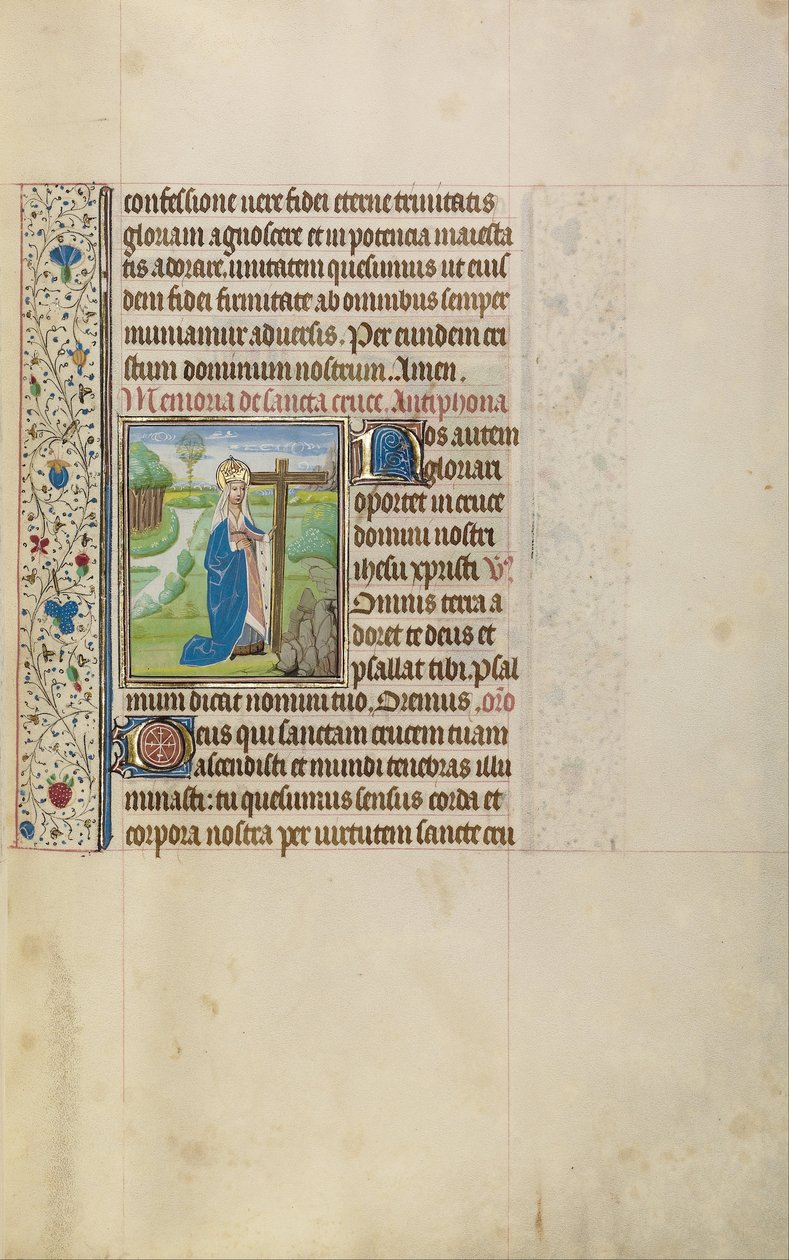 confessione uere fidei eterne trinitatis
gloriam agnoscere et in potencia maiesta
tis adorare, unitatem quesumus ut eius
dem fidei firmitate ab omnibus semper
muniamur aduersis. Per eundem cri
stum dominum nostrum. Amen.
Memoria de sancta cruce. Antiphona
Nos autem
gloriari
oportet in cruce
domini nostri
ihesu xpristi V̕
Omnis terra a
doret te deus et
psallat tibi. Psal
mum dicat nomini tuo. Oremus. or̄o
Deus qui sanctam crucem tuam
ascendisti et mundi tenebras illu
minasti: tu quesumus sensus corda et
corpora nostra per uirtutem sancte cru